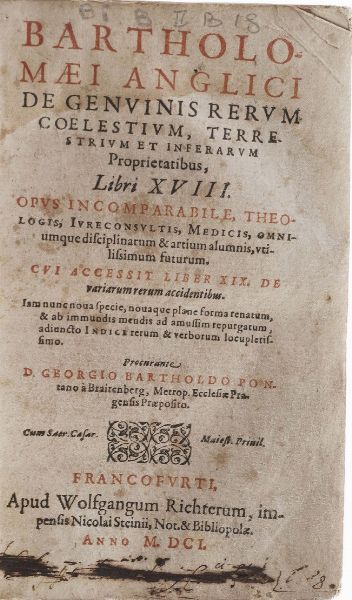 BARTHOLO-
MÆI ANGLICI
DE GENVINIS RERVM
COELESTIVM, TERRE-
STRIVM ET INFERARVM
Proprietatibus,
Libri XVIII.
OPVS INCOMPARABILE, THEO-
LOGIS, IVRECONSVLTIS, MEDICIS, OMNI-
umque disciplinarum & artium alumnis, vti-
lissimum futurum.
CVI ACCESSIT LIBER XIX. DE
variarum rerum accidentibus.
Iam nunc noua specie, nouaque plane forma renatum,
& ab immundis mendis ad amussim repurgatum,
adiuncto INDICE rerum & verborum locupletis-
simo.
Procurante
D. GEORGIO BARTHOLDO PON-
tano à Braitenberg, Metrop. Ecclesiæ Pra-
gensis Præposito.
Cum Sacr. Cæsar. Maiest. Priuil.
FRANCOFVRTI,
Apud Wolfgangum Richterum, im-
pensis Nicolai Steinii, Not. & Bibliopolæ.
ANNO M. DCI.